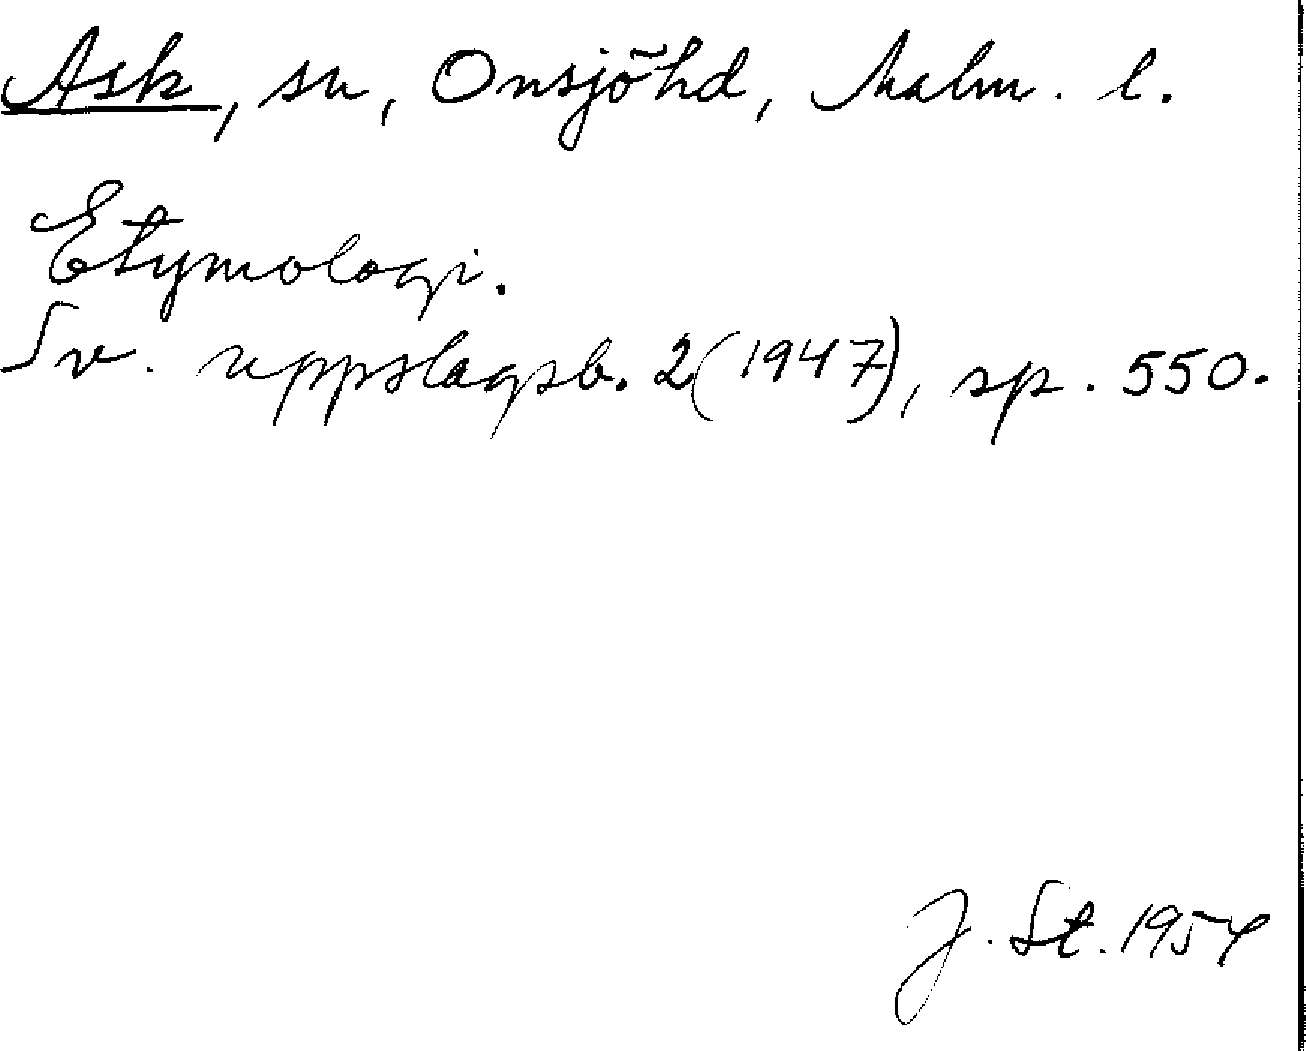 Ask, sn, Onsjöhd, Malm. l.
Etymologi.
Sv. uppslagsb. 2 (1947), sp. 550.
J. St. 1954